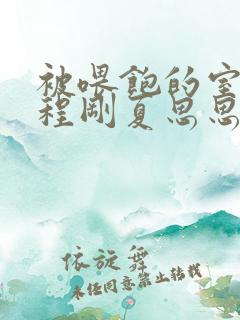 被喂饱的室
程刚夏思思
依旋舞
未经同意禁止转载